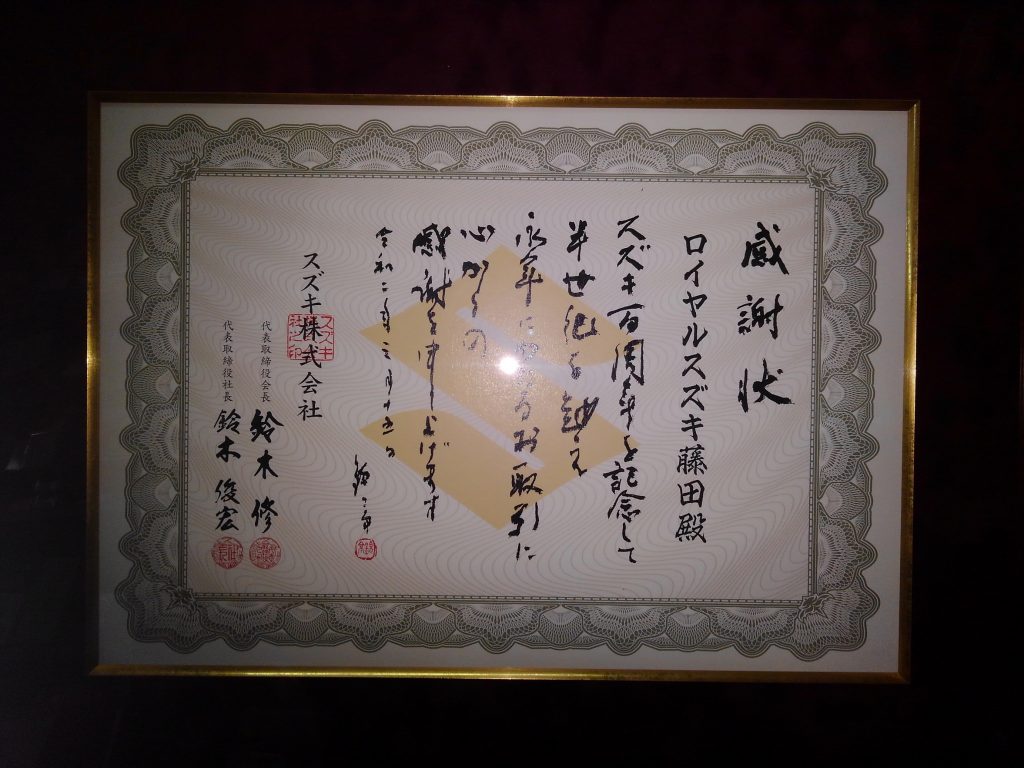 感謝状
ロイヤルスズキ藤田殿
スズキ百周年を記念して
半世紀を越え
永年にわたるお取引に
心からの
感謝を申し上げます
令和二年三月十五日
スズキ株式会社
代表取締役会長 鈴木 修
代表取締役社長 鈴木 俊宏